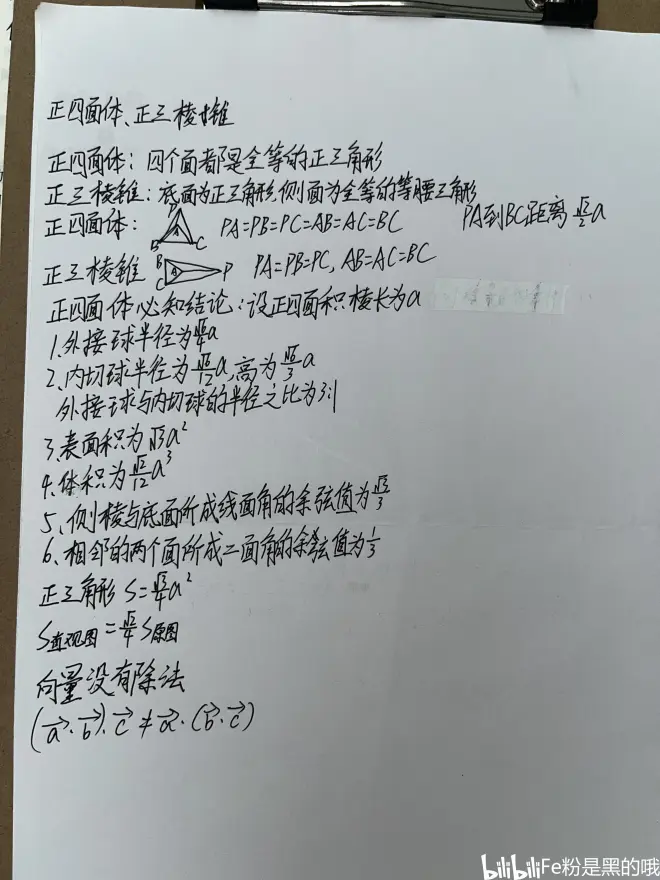 正四面体、正三棱锥
正四面体：四个面都是全等的正三角形
正三棱锥：底面为正三角形,侧面为全等的等腰三角形
正四面体： P A B C PA=PB=PC=AB=AC=BC PA到BC距离√2/2a
正三棱锥 B A C P PA=PB=PC, AB=AC=BC
正四面体必知结论：设正四面积棱长为a
1、外接球半径为√6/4a
2、内切球半径为√6/12a,高为√6/3a
外接球与内切球的半径之比为3:1
3、表面积为√3a²
4、体积为√2/12a³
5、侧棱与底面所成线面角的余弦值为√3/3
6、相邻的两个面所成二面角的余弦值为1/3
正三角形 S=√3/4a²
S直观图=√2/4S原图
向量没有除法
(a→·b→)·c→≠a→·(b→·c→)
bilibili Fe粉是黑的哦